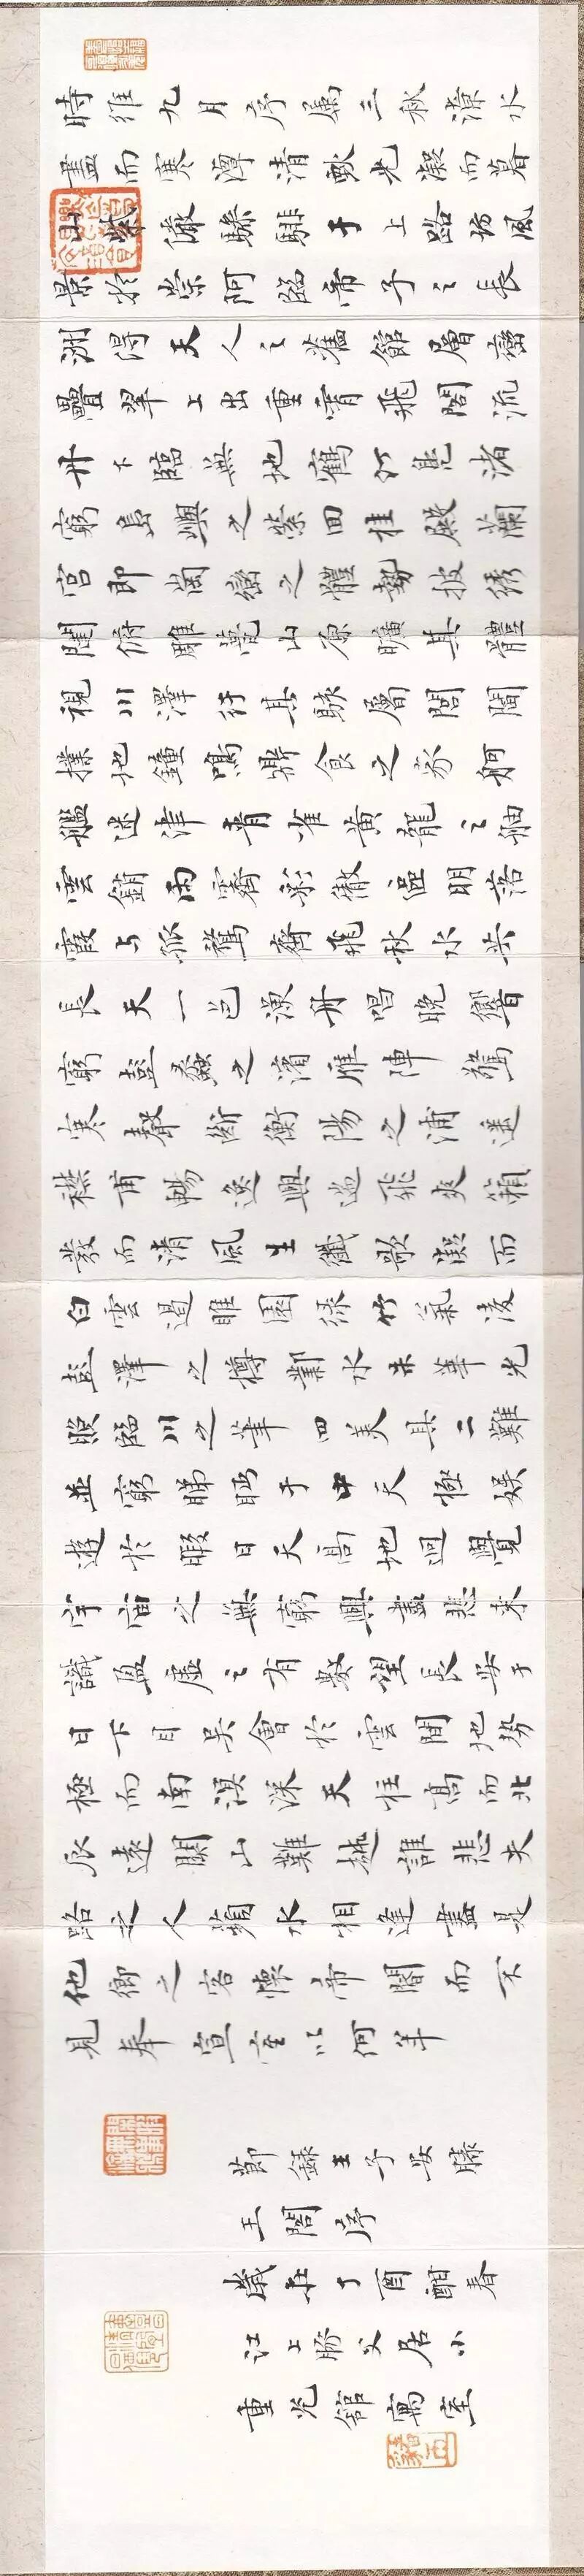 時維九月序屬三秋潦水
盡而寒潭清煙光凝而暮
山紫儼驂騑于上路訪風
景於崇阿臨帝子之長
洲得天人之舊館層巒
疊翠上出重霄飛閣流
丹下臨無地鶴汀鳧渚
窮島嶼之縈回桂殿蘭
宮即崗巒之體勢披綉
闥俯雕甍山原曠其體
視川澤紆其駭屬閭閻
撲地鐘鳴鼎食之家舸
艦迷津青雀黃龍之舳
雲銷雨霽彩徹區明落
霞与孤鶩齊飛秋水共
長天一色漁舟唱晚響
窮彭蠡之濱雁陣驚
寒聲斷衡陽之浦遥
襟甫暢逸興遄飛爽籟
發而清風生纖歌凝而
白雲遏睢園緑竹氣凌
彭澤之樽鄴水朱華光
照臨川之筆四美具二難
並窮睇眄于中天極娛
遊於暇日天高地迥覺
宇宙之無窮興盡悲來
識盈虛之有數望長安于
日下目吳會於雲間地勢
極而南溟深天柱高而北
辰遠關山難越誰悲失
路之人蘋水相逢盡是
他鄉之客懷帝閽而不
見奉宣室以何年
節録王子安滕
王閣序
歲在丁酉酣春
江上勝父居小
重光館寓室